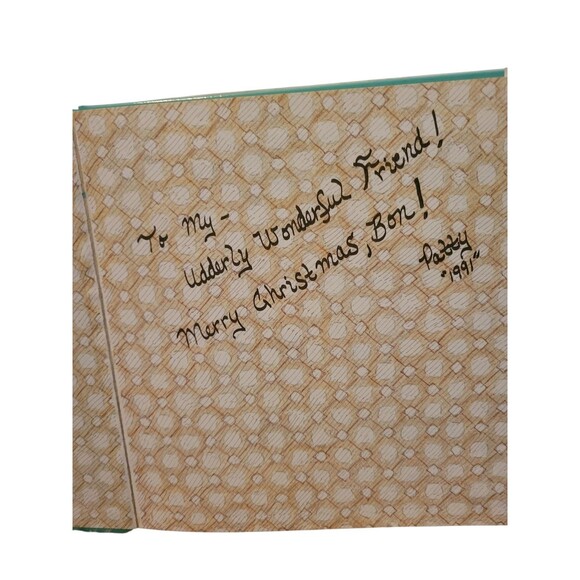 To My-
Udderly Wonderful Friend!
Merry Christmas, Bon!
Patty
"1991"